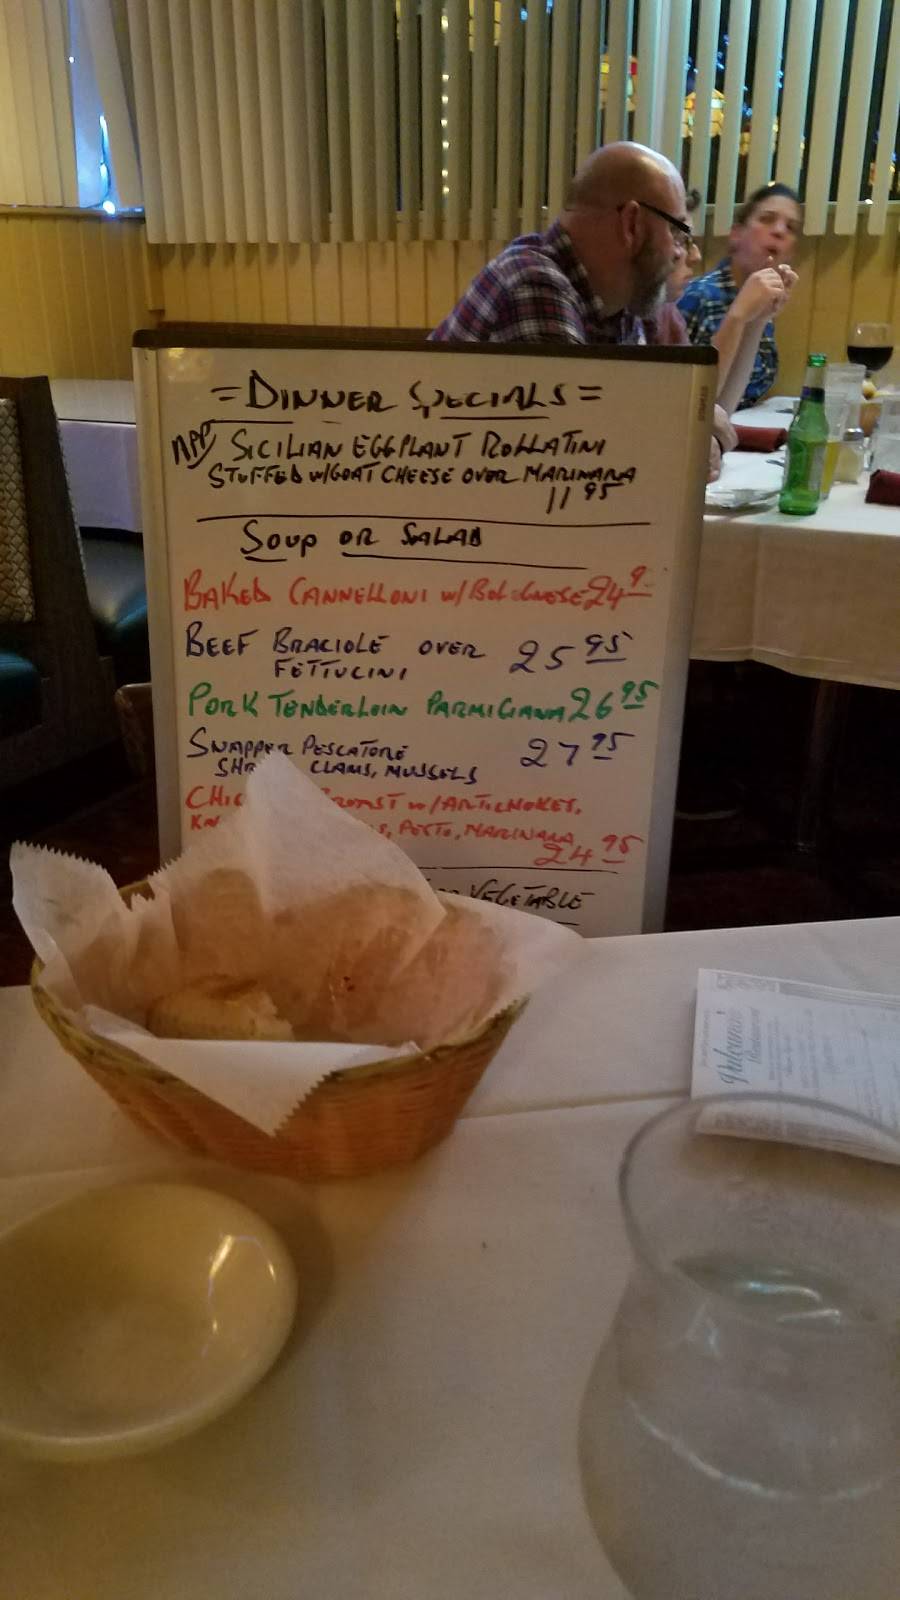 = DINNER SPECIALS =
APP SICILIAN EGGPLANT ROLLATINI
STUFFED W/GOAT CHEESE OVER MARINARA
11 95
SOUP OR SALAD
BAKED CANNELLONI W/ BOLOGNESE 24 9
BEEF BRACIOLE OVER 25 95
FETTUCINI
PORK TENDERLOIN PARMIGIANA 26 95
SNAPPER PESCATORE 27 95
CLAMS, MUSSELS
BREAST W/ARTICHOKES,
PESTO, MARINARA
24 95
VEGETABLE
Restaurant